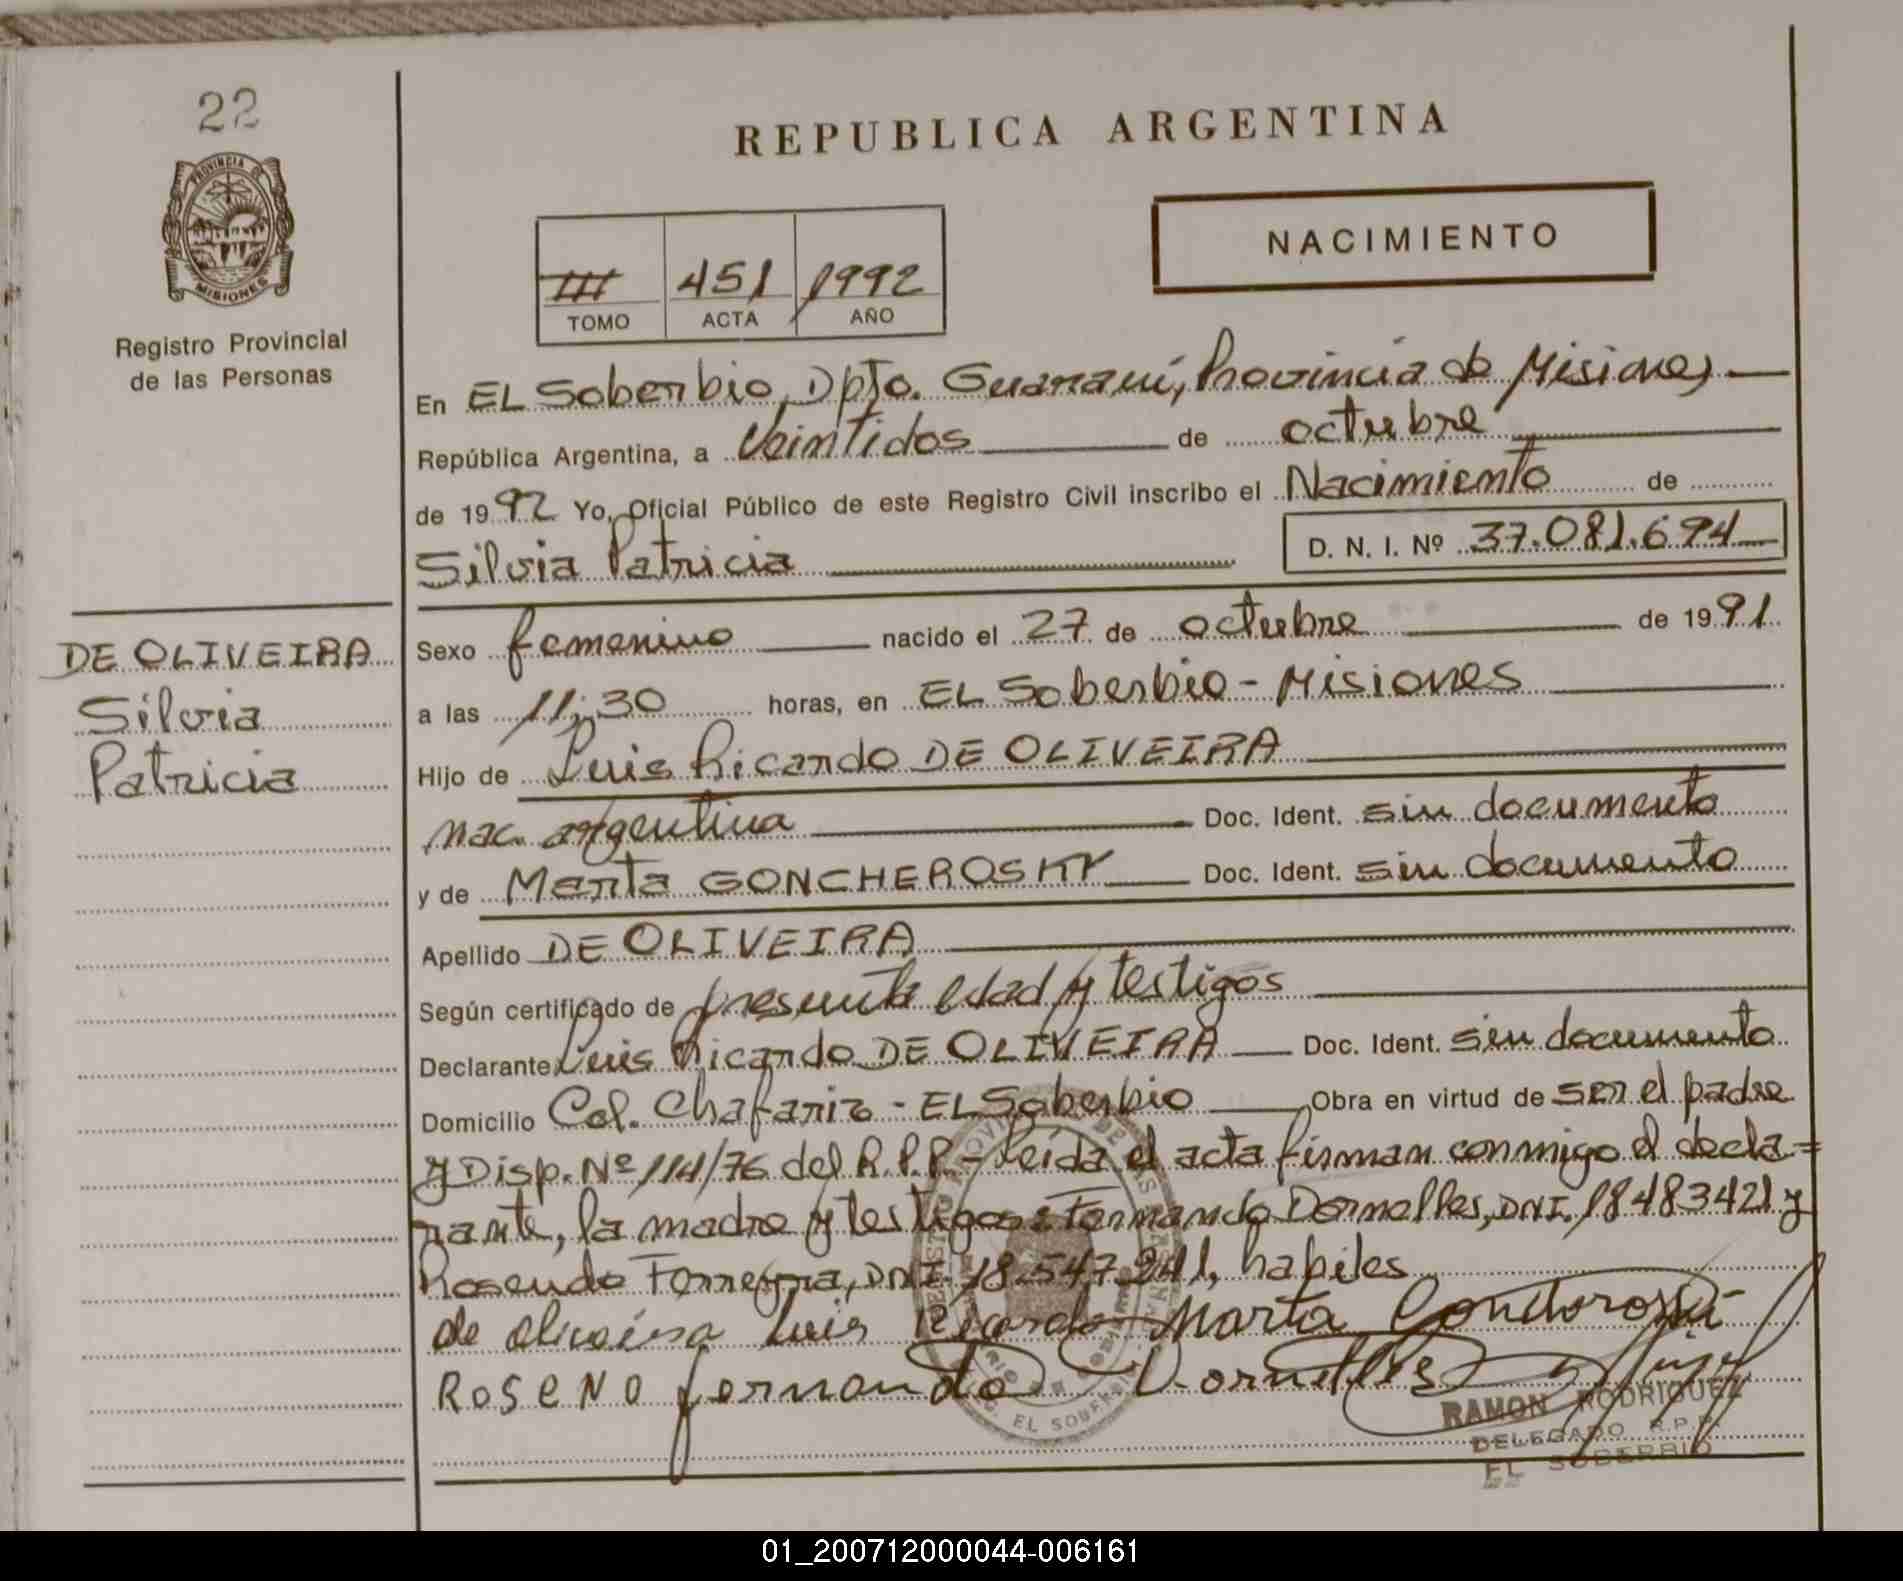 22
PROVINCIA DE
MISIONES
Registro Provincial
de las Personas
REPUBLICA ARGENTINA
NACIMIENTO
III 451 1992
TOMO ACTA AÑO
En EL Soberbio, Dpto. Guaraní, Provincia de Misiones
República Argentina, a Veintidos de octubre
de 1992 Yo, Oficial Público de este Registro Civil inscribo el Nacimiento de
Silvia Patricia D. N. I. Nº 37.081.694
DE OLIVEIRA
Silvia
Patricia
Sexo femenino nacido el 27 de octubre de 1991
a las 11,30 horas, en EL Soberbio - Misiones
Hijo de Luis Ricardo DE OLIVEIRA
nac. argentina Doc. Ident. sin documento
y de Marta GONCHEROSKY Doc. Ident. sin documento
Apellido DE OLIVEIRA
Según certificado de presunta edad y testigos
Declarante Luis Ricardo DE OLIVEIRA Doc. Ident. sin documento
Domicilio Col. Chafariz - EL Soberbio Obra en virtud de ser el padre
y Disp. Nº 114/76 del R.P.P. - Leída el acta firman conmigo el decla=
rante, la madre y testigos: Fernando Dornelles, DNI. 18483421 y
Rosendo Ferreyra, DNI. 18.547.241, habiles
de oliveira Luis Ricardo Marta
ROSENO fernando Dornelles
RAMON RODRIGUEZ
DELEGADO R.P.P.
EL SOBERBIO
01_200712000044-006161